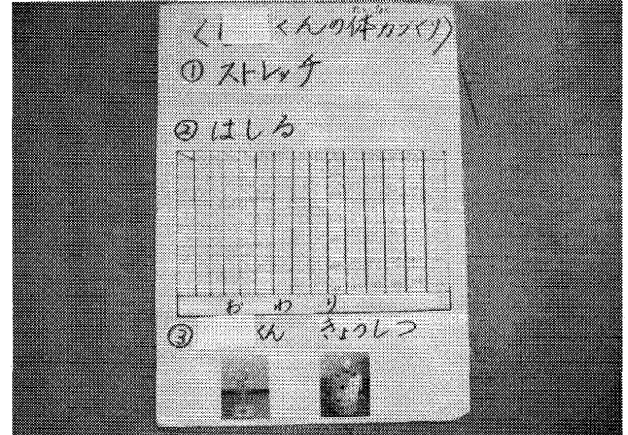 くんの体力つくり
① ストレッチ
② はしる
おわり
③ くん きょうしつ